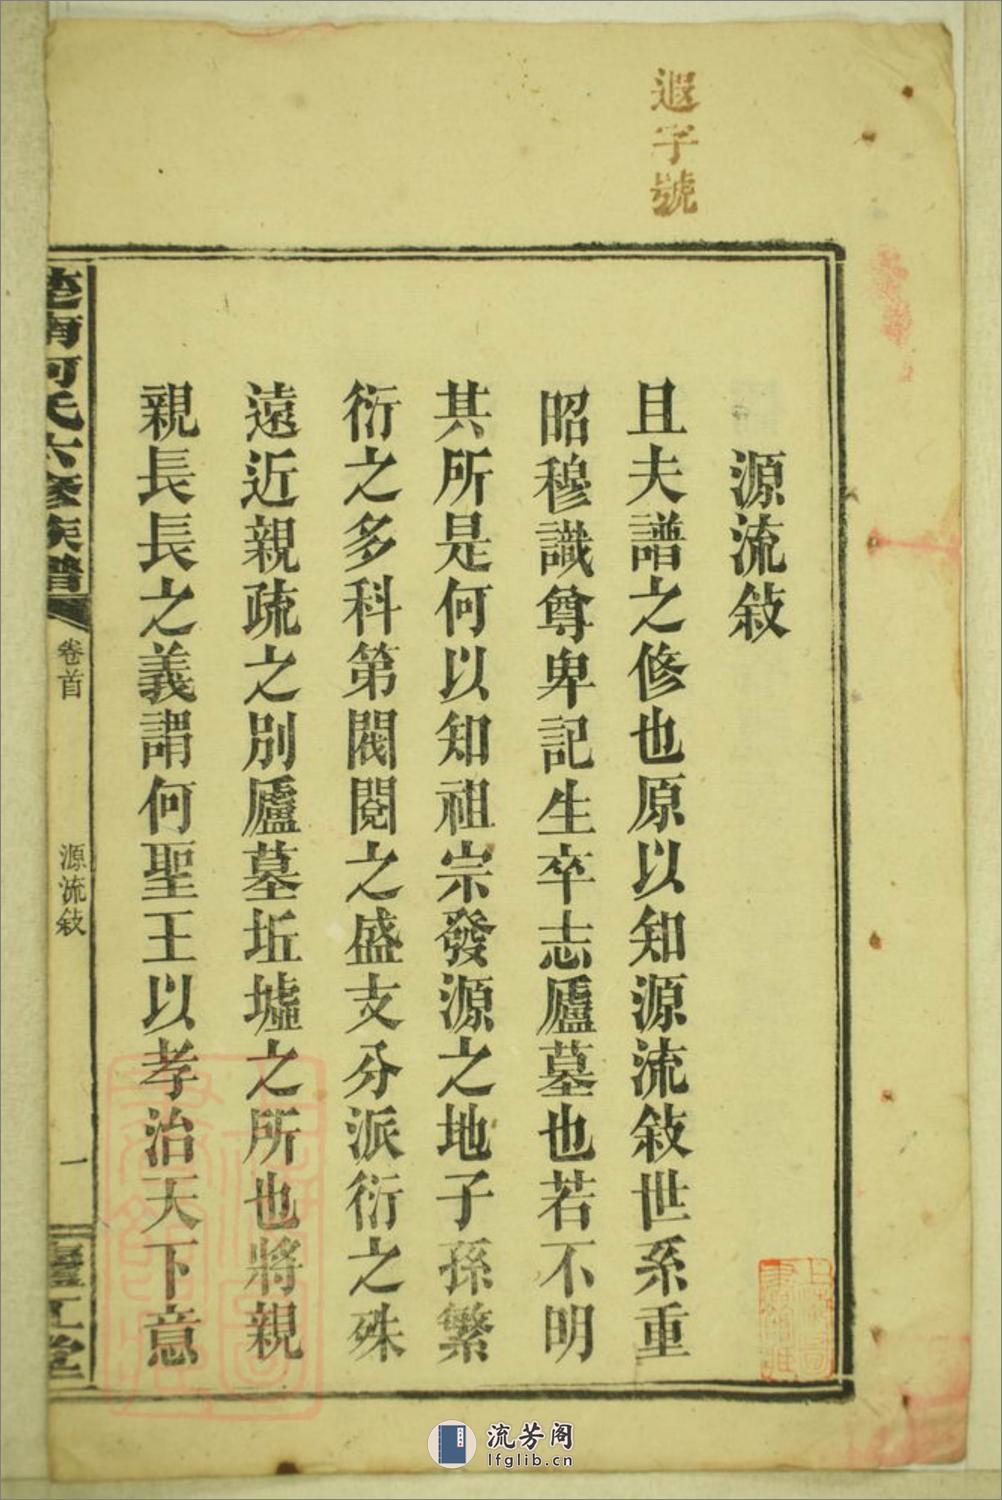 遐字號
源流敘
且夫譜之修也原以知源流敘世系重
昭穆識尊卑記生卒志廬墓也若不明
其所是何以知祖宗發源之地子孫繁
衍之多科第閥閱之盛支分派衍之殊
遠近親疏之別廬墓坵墟之所也將親
親長長之義謂何聖王以孝治天下意
楚南何氏六修族譜
卷首
源流敘
一
廬江堂
流芳阁
lfglib.cn